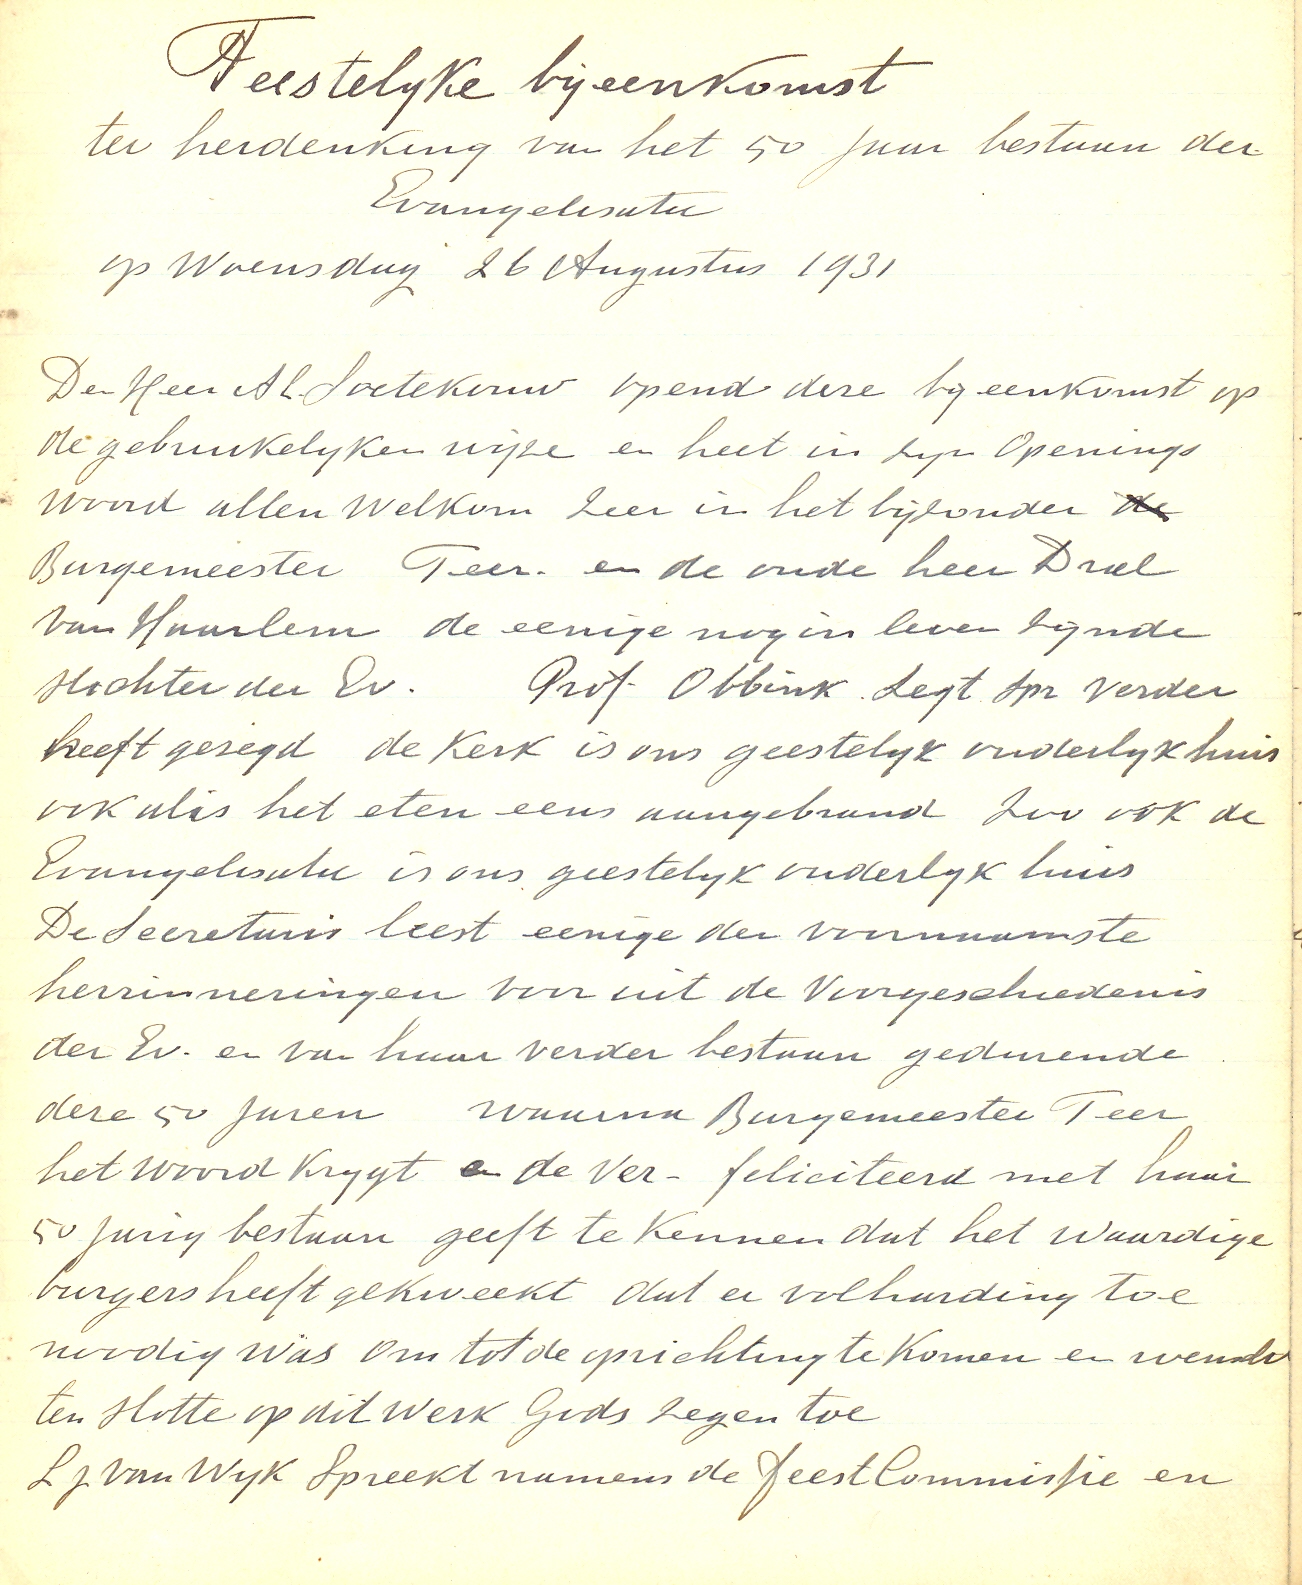 Feestelyke bijeenkomst
ter herdenking van het 50 Jaar bestaan der
Evangelisatie
op Woensdag 26 Augustus 1931
De Heer A L Soetekouw opend deze bijeenkomst op
de gebruikelyken wijze en heet in zyn Openings
woord allen Welkom Zeer in het bijzonder de
Burgemeester Teer. en de oude heer Dral
van Haarlem de eenige nog in leven zijnde
stichter der Ev. Prof. Obbink zegt Spr verder
heeft gezegd de Kerk is ons geestelyk ouderlyk huis
ook al is het eten eens aangebrand Zoo ook de
Evangelisatie is ons geestelyk ouderlyk huis
De Secretaris leest eenige der voornaamste
herrinneringen voor uit de Voorgeschiedenis
der Ev. en van haar verder bestaan gedurende
deze 50 Jaren waarna Burgemeester Teer
het woord krygt en de Ver- feliciteerd met haar
50 Jarig bestaan geeft te kennen dat het waardige
burgers heeft gekweekt dat er volharding toe
noodig was om tot de oprichting te komen en wenscht
ten slotte op dit werk Gods zegen toe
L J van Wyk Spreekt namens de feest Commissie en